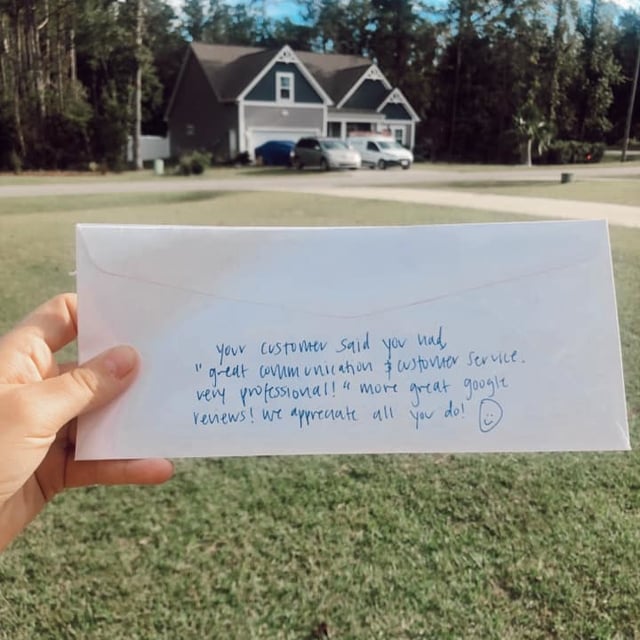 your customer said you had,
"great communication & customer service.
very professional!" more great google
reviews! we appreciate all you do!